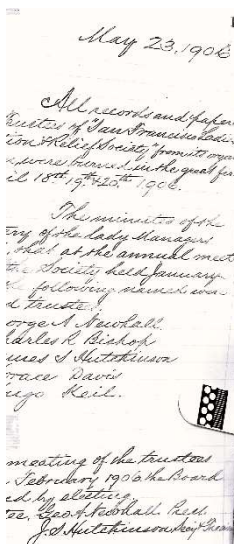 May 23, 1906
All records and paper
rustees of "San Francisco Ladi-
tion & Relief Society" from its orga
were burned in the great fir
il 18th 19th & 20th 1906.
The minutes of the
try of the Lady Managers
that at the annual meet
the Society held January
following named wer
d trustees.
orge A Newhall.
harles R Bishop
mes S Hutchinson
orace Davis
ugo Keil.
meeting of the trustees
February 1906 the Board
ed by electing
tee, Geo A Newhall Prest
J. S. Hutchinson Secy & Treas